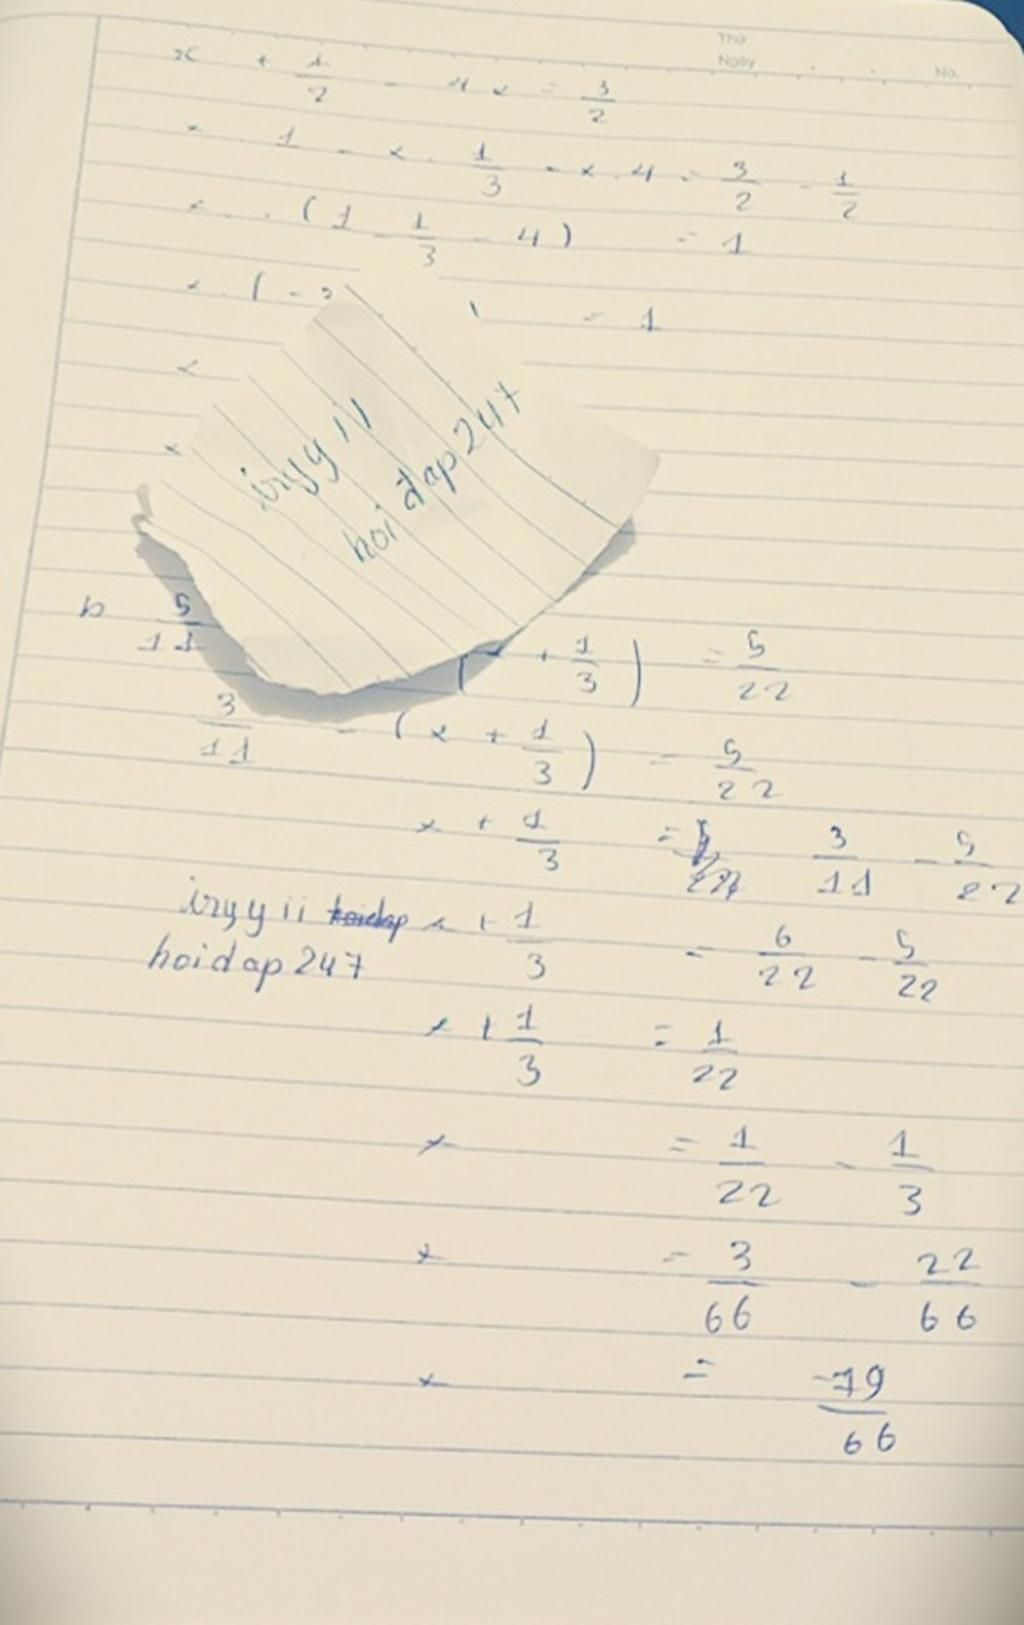 Thứ
Ngày No.
x + 1/2 - 4x = 3/2
x . 1 - x . 1/3 - x . 4 = 3/2 - 1/2
x . (1 - 1/3 - 4) = 1
x . ( - = 1
x
x
iryy ii
hoi dap 247
b 5/11 (x + 1/3) = 5/22
3/11 - (x + 1/3) = 5/22
x + 1/3 = 3/11 - 5/22
iryy ii hoidap x + 1/3 = 6/22 - 5/22
hoidap 247
x + 1/3 = 1/22
x = 1/22 - 1/3
x = 3/66 - 22/66
x = -19/66